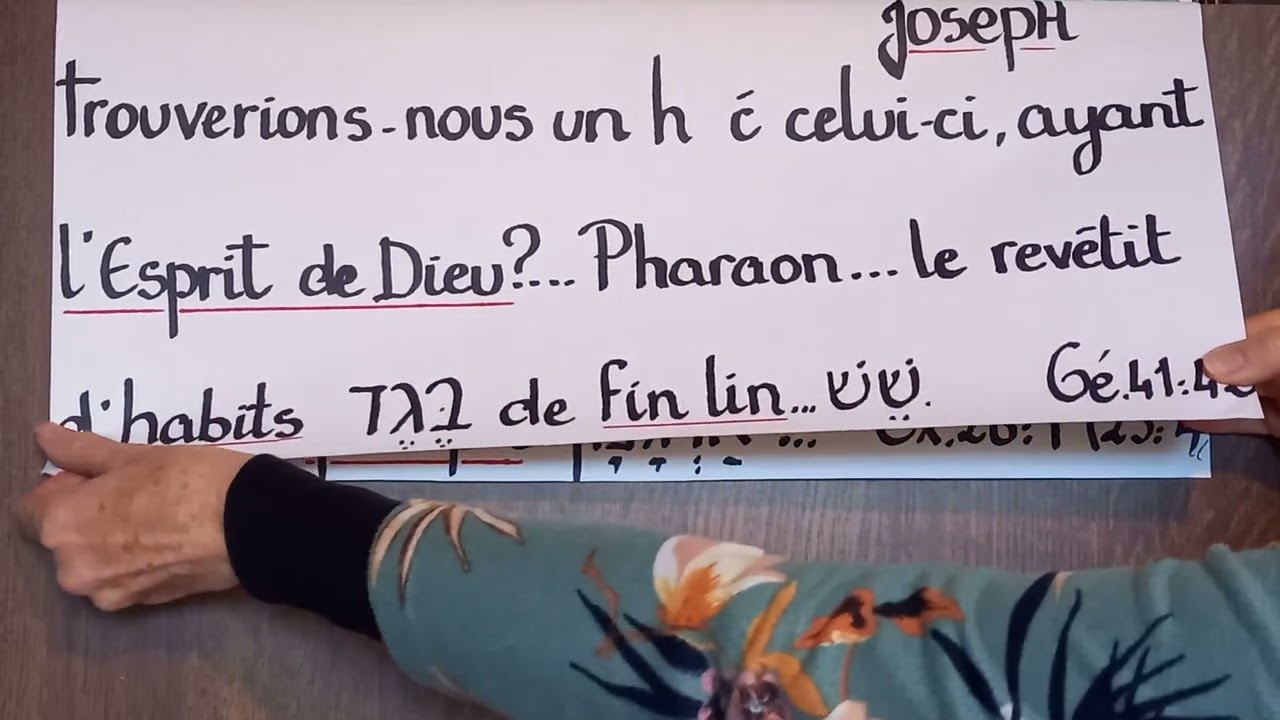 Joseph
Trouverions-nous un h ć celui-ci, ayant
l'Esprit de Dieu?... Pharaon... le revêtit
d'habits בֶּגֶד de fin lin... שֵׁשׁ. Gé.41:42